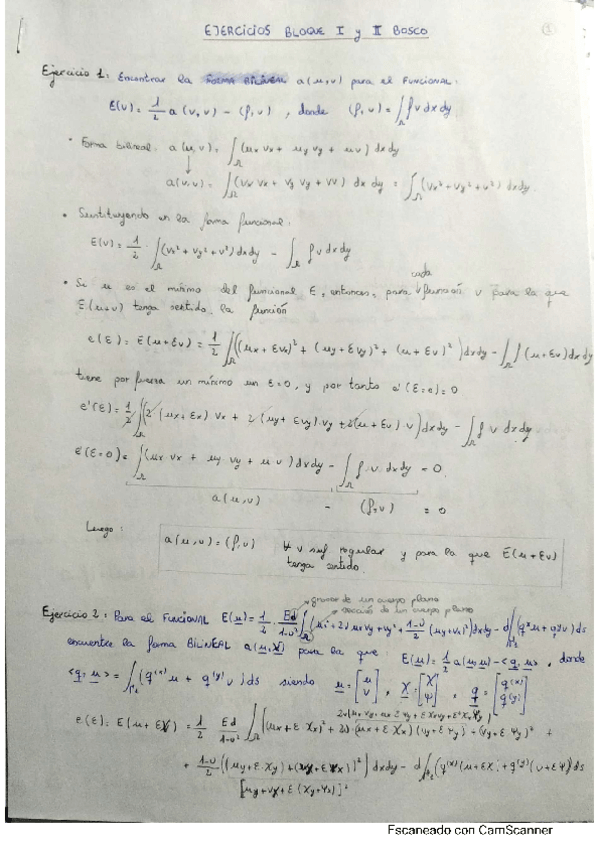 EJERCICIOS BLOQUE I y II BOSCO
Ejercicio 1: Encontrar la FORMA BILINEAL a(u,v) para el FUNCIONAL:
E(v) = 1/2 a(v,v) - (f,v), donde (f,v) = ∫_Ω f v dx dy.
• Forma bilineal: a(u,v) = ∫_Ω (ux vx + uy vy + uv) dx dy
a(v,v) = ∫_Ω (vx vx + vy vy + vv) dx dy = ∫_Ω (vx² + vy² + v²) dx dy.
• Sustituyendo en la forma funcional:
E(v) = 1/2 · ∫_Ω (vx² + vy² + v²) dx dy - ∫_Ω f v dx dy
• Si u es el mínimo del funcional E, entonces, para cada función v para la que
E(u+εv) tenga sentido, la función
e(ε) = E(u+εv) = 1/2 ∫_Ω ((ux + εvx)² + (uy + εvy)² + (u + εv)²) dx dy - ∫_Ω f (u+εv) dx dy
tiene por fuerza un mínimo en ε=0, y por tanto e'(ε=0) = 0
e'(ε) = 1/2 ∫_Ω (2 (ux + εx) vx + 2 (uy + εvy) vy + 2(u + εv) · v) dx dy - ∫_Ω f v dx dy
e'(ε=0) = ∫_Ω (ux vx + uy vy + u v) dx dy - ∫_Ω f · v dx dy = 0.
a(u,v) - (f,v) = 0
Luego: a(u,v) = (f,v) ∀ v suf regular y para la que E(u+εv)
tenga sentido.
grosor de un cuerpo plano
sección de un cuerpo plano
Ejercicio 2: Para el FUNCIONAL E(u) = 1/2 · Ed/1-ν² ∫_Ω (ux² + 2ν ux vy + vy² + 1-ν/2 (uy + vx)²) dx dy - d ∫_Γ2 (q^(x) u + q^(y) v) ds
encuentre la forma BILINEAL a(u,χ) para la que: E(u) = 1/2 a(u,u) - <q,u>, donde
<q,u> = ∫_Γ2 (q^(x) u + q^(y) v) ds siendo u = [u v], χ = [χ ψ], q = [q^(x) q^(y)]
e(ε) = E(u + εχ) = 1/2 Ed/1-ν² ∫_Ω [(ux + ε χx)² + 2ν · (ux + ε χx)(vy + ε ψy) + (vy + ε ψy)² +
+ 1-ν/2 ((uy + ε χy) + (vx + ε ψx))²] dx dy - d ∫_Γ2 (q^(x) (u + εχ) + q^(y) (v + εψ)) ds
[uy + vx + ε (χy + ψx)]²
Escaneado con CamScanner